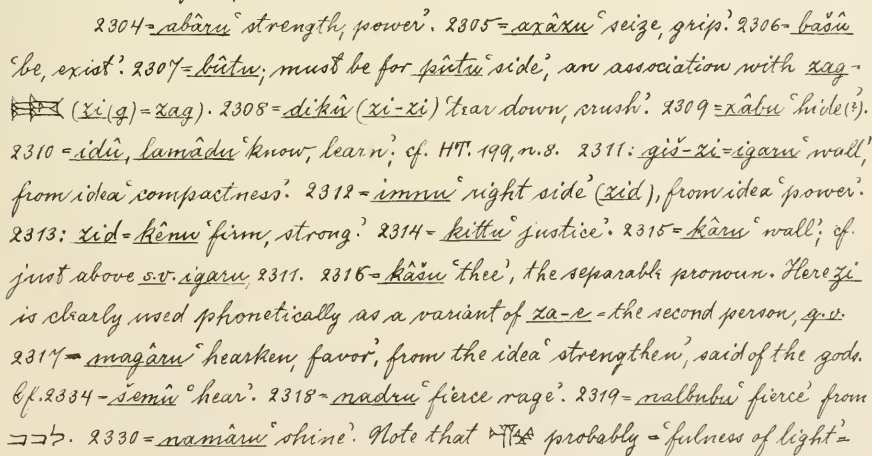 2304=abâru ‘strength, power’. 2305=axâzu ‘seize, grip’. 2306=bašû
‘be, exist’. 2307=bûtu; must be for pûtu ‘side’, an association with zag-
(zi(g)=zag). 2308=dikû (zi-zi) ‘tear down, crush’. 2309=xâbu ‘hide(?)’.
2310=idû, lamâdu ‘know, learn’; cf. HT. 199, n. 8. 2311: giš-zi=igaru ‘wall’,
from idea ‘compactness’. 2312=imnu ‘right side’ (zid), from idea ‘power’.
2313: zid=kênu ‘firm, strong’. 2314=kittu ‘justice’. 2315=kâru ‘wall’; cf.
just above s.v. igaru, 2311. 2316=kâšu ‘thee’, the separable pronoun. Here zi
is clearly used phonetically as a variant of za-e=the second person, q.v.
2317=magâru ‘hearken, favor’, from the idea ‘strengthen’, said of the gods.
Cf. 2334=šemû ‘hear’. 2318=nadru ‘fierce rage’. 2319=nalbubu ‘fierce’ from
לבב. 2330=namâru ‘shine’. Note that probably=‘fulness of light’=